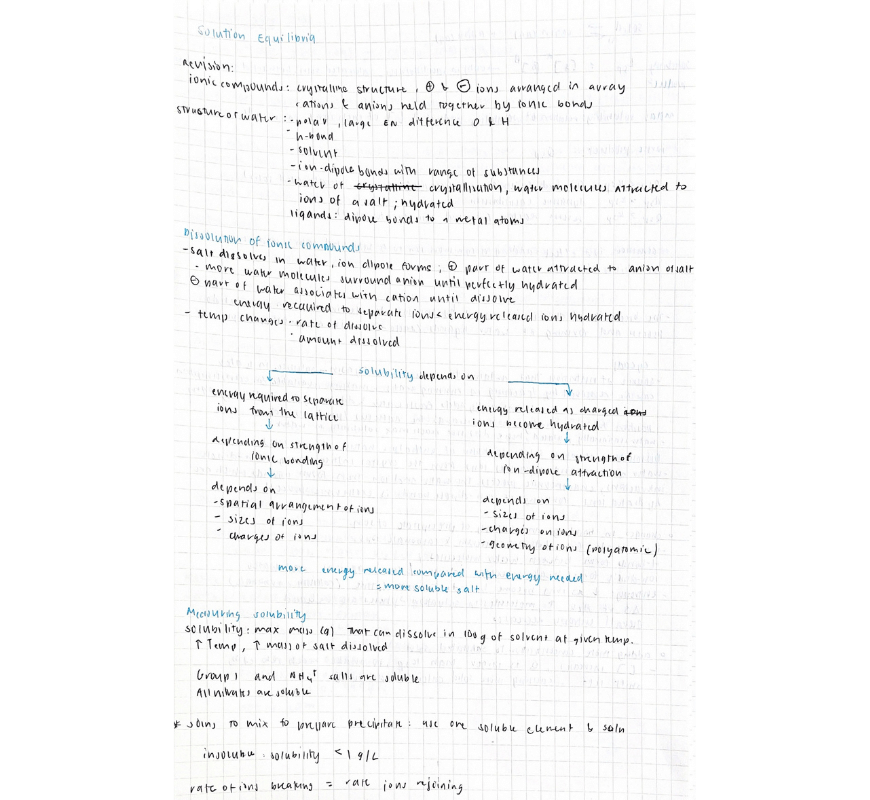 Solution Equilibria
revision:
ionic compounds: crystalline structure, ⊕ & ⊖ ions arranged in array
cations & anions held together by ionic bonds
structure of water: - polar, large EN difference O & H
- h-bond
- solvent
- ion-dipole bonds with range of substances
- water of crystalline crystallisation, water molecules attracted to
ions of a salt; hydrated
ligands: dipole bonds to a metal atoms
Dissolution of ionic compounds
- salt dissolves in water, ion dipole forms, ⊕ part of water attracted to anion of salt
- more water molecules surround anion until perfectly hydrated
⊖ part of water associates with cation until dissolve
energy required to separate ions < energy released ions hydrated
- temp changes - rate of dissolve
- amount dissolved
solubility depends on
energy required to separate
ions from the lattice
depending on strength of
ionic bonding
depends on
- spatial arrangement of ions
- sizes of ions
- charges of ions
energy released as charged ions
ions become hydrated
depending on strength of
ion-dipole attraction
depends on
- sizes of ions
- charges on ions
- geometry of ions (polyatomic)
more energy released compared with energy needed
= more soluble salt
Measuring solubility
solubility: max mass (g) that can dissolve in 100g of solvent at given temp.
↑ Temp, ↑ mass of salt dissolved
Group 1 and NH₄⁺ salts are soluble
All nitrates are soluble
* solns to mix to prepare precipitate: use one soluble element & soln
insoluble: solubility < 1 g/L
rate of ions breaking = rate ions rejoining